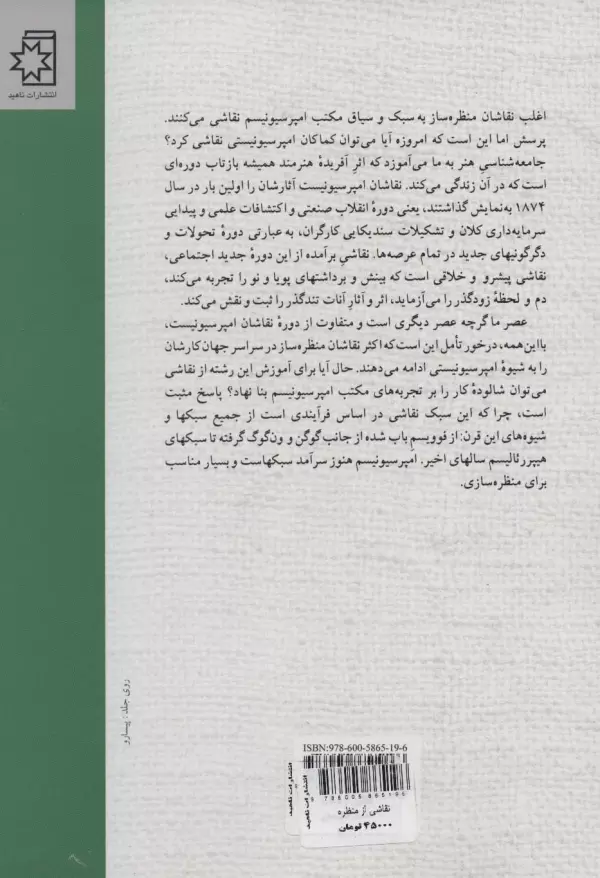 انتشارات ناهید
اغلب نقاشان منظره‌ساز به سبک و سیاق مکتب امپرسیونیسم نقاشی می‌کنند.
پرسش اما این است که امروزه آیا می‌توان کماکان امپرسیونیستی نقاشی کرد؟
جامعه‌شناسیِ هنر به ما می‌آموزد که اثرِ آفریدهٔ هنرمند همیشه بازتاب دوره‌ای
است که در آن زندگی می‌کند. نقاشان امپرسیونیست آثارشان را اولین بار در سال
۱۸۷۴ به‌نمایش گذاشتند، یعنی دورهٔ انقلاب صنعتی و اکتشافات علمی و پیدایی
سرمایه‌داری کلان و تشکیلات سندیکایی کارگران، به عبارتی دورهٔ تحولات و
دگرگونیهای جدید در تمام عرصه‌ها. نقاشیِ برآمده از این دورهٔ جدید اجتماعی،
نقاشی پیشرو و خلاقی است که بینش و برداشتهای پویا و نو را تجربه می‌کند،
دم و لحظهٔ زودگذر را می‌آزماید، اثر و آثارِ آنات تندگذر را ثبت و نقش می‌کند.
عصر ما گرچه عصر دیگری است و متفاوت از دورهٔ نقاشان امپرسیونیست،
بااین‌همه، درخور تأمل این است که اکثر نقاشان منظره‌ساز در سراسر جهان کارشان
را به شیوهٔ امپرسیونیستی ادامه می‌دهند. حال آیا برای آموزش این رشته از نقاشی
می‌توان شالودهٔ کار را بر تجربه‌های مکتب امپرسیونیسم بنا نهاد؟ پاسخ مثبت
است، چرا که این سبک نقاشی در اساس فرآیندی است از جمیع سبکها و
شیوه‌های این قرن: از فوویسمِ باب شده از جانب گوگن و ون‌گوگ گرفته تا سبکهای
هیپررئالیسم سالهای اخیر. امپرسیونیسم هنوز سرآمد سبکهاست و بسیار مناسب
برای منظره‌سازی.
روی جلد: پیسارو
ISBN:978-600-5865-19-6
انتشارات ناهید
انتشارات ناهید
نقاشی از منظره
۴۵۰۰۰ تومان